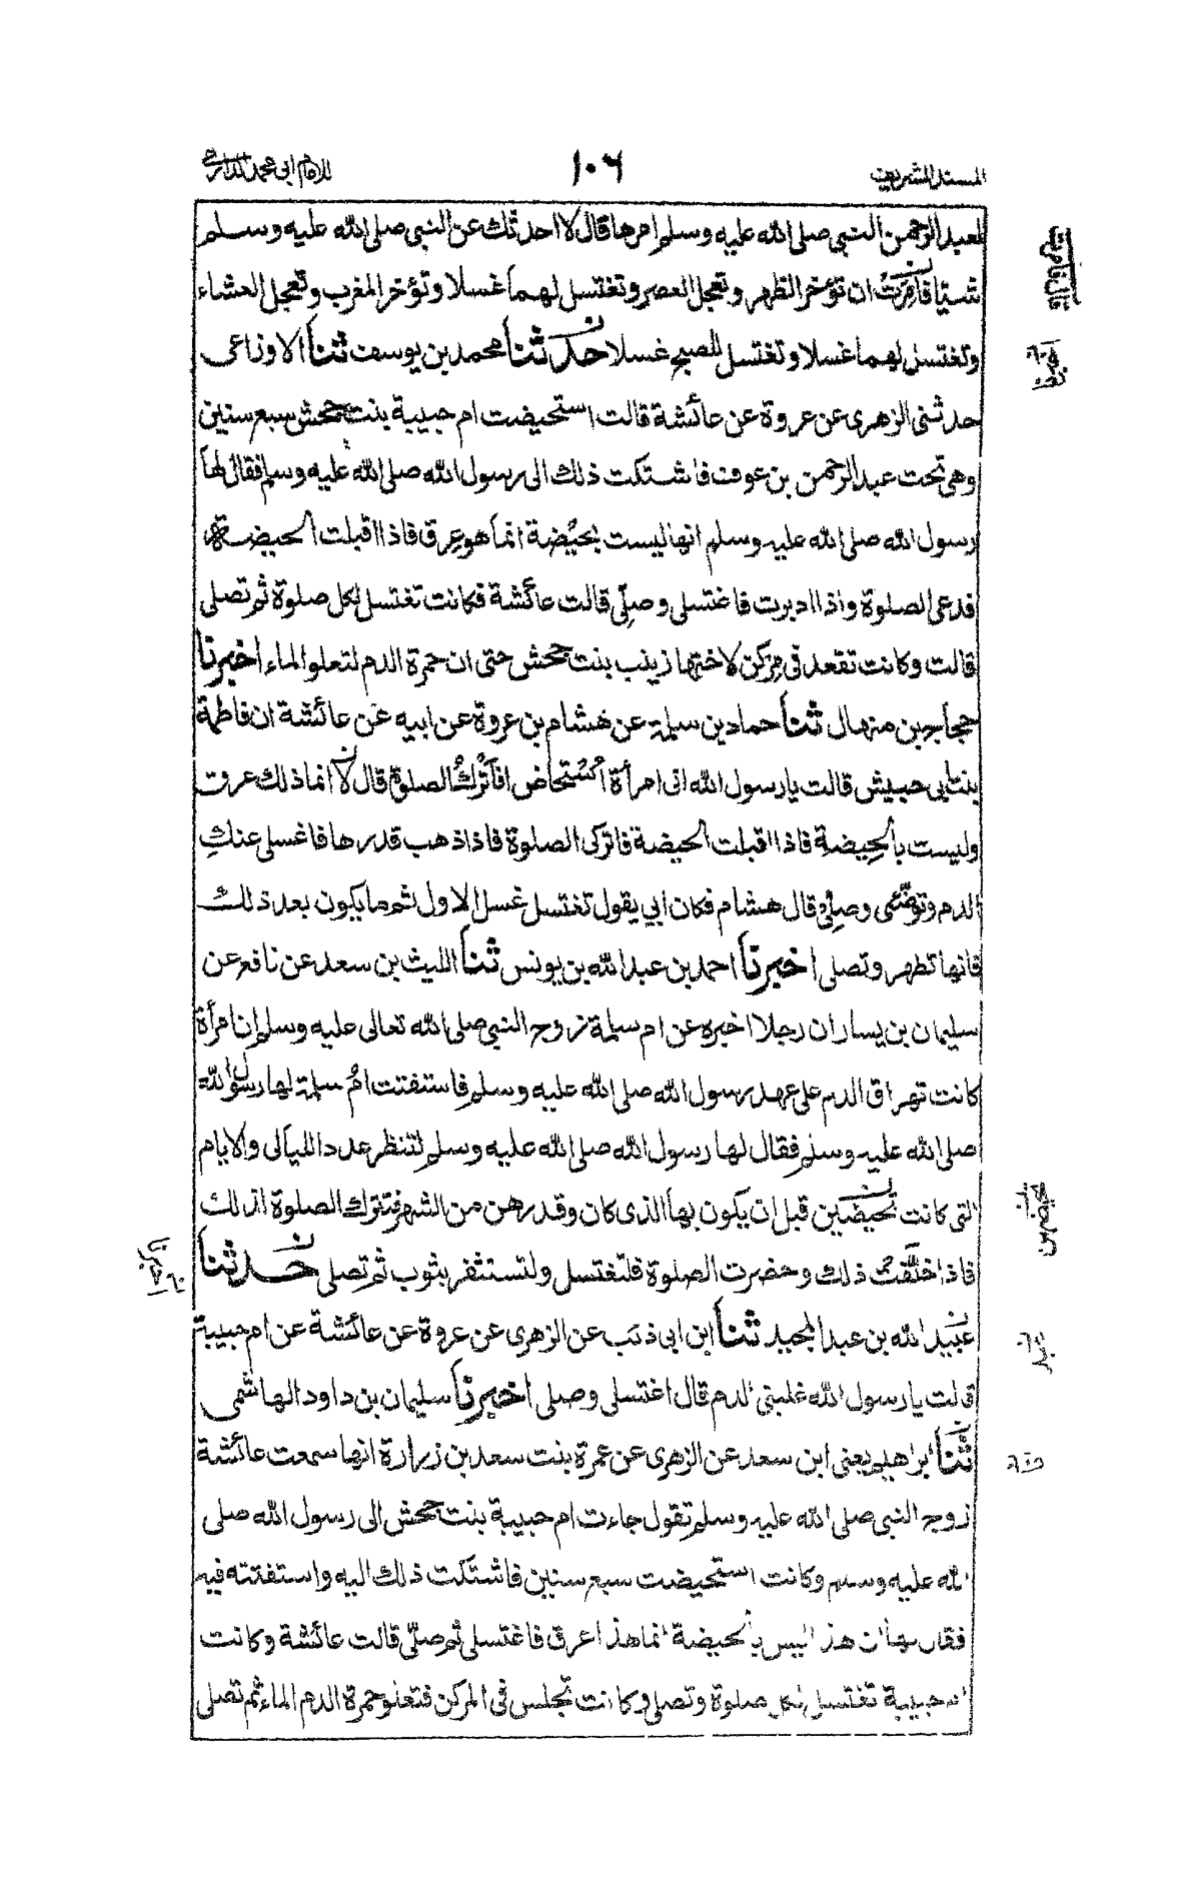 المسند الشريف
١٠٦
للامام ابى محمد الدارمى
لعبد الرحمن النبى صلى الله عليه وسلم امرها قال لا احدثك عن النبى صلى الله عليه وسلم
شيئا فأمرت ان تؤخر الظهر وتعجل العصر وتغتسل لهما غسلا وتؤخر المغرب وتعجل العشاء
وتغتسل لهما غسلا وتغتسل للصبح غسلا حدثنا محمد بن يوسف ثنا الاوزاعى
حدثنى الزهرى عن عروة عن عائشة قالت استحيضت ام حبيبة بنت جحش سبع سنين
وهى تحت عبد الرحمن بن عوف فاشتكت ذلك الى رسول الله صلى الله عليه وسلم فقال لها
رسول الله صلى الله عليه وسلم انها ليست بحيضة انما هو عرق فاذا اقبلت الحيضة
فدعى الصلوة واذا ادبرت فاغتسلى وصلى قالت عائشة فكانت تغتسل لكل صلوة ثم تصلى
قالت وكانت تقعد فى مركن لاختها زينب بنت جحش حتى ان حمرة الدم لتعلو الماء اخبرنا
حجاج بن منهال ثنا حماد بن سلمة عن هشام بن عروة عن ابيه عن عائشة ان فاطمة
بنت ابى حبيش قالت يا رسول الله انى امرأة أستحاض افأترك الصلوة قال لا انما ذلك عرق
وليست بالحيضة فاذا اقبلت الحيضة فاتركى الصلوة فاذا ذهب قدرها فاغسلى عنك
الدم وتوضئى وصلى قال هشام فكان ابي يقول تغتسل غسل الاول ثم ما يكون بعد ذلك
فانها تطهر وتصلى اخبرنا احمد بن عبد الله بن يونس ثنا الليث بن سعد عن نافع عن
سليمان بن يسار ان رجلا اخبره عن ام سلمة زوج النبى صلى الله تعالى عليه وسلم ان امرأة
كانت تهراق الدم على عهد رسول الله صلى الله عليه وسلم فاستفتت ام سلمة لها رسول الله
صلى الله عليه وسلم فقال لها رسول الله صلى الله عليه وسلم لتنظر عدد الليالى والايام
التى كانت تحيضهن قبل ان يكون بها الذى كان وقدرهن من الشهر فتترك الصلوة لذلك
فاذا خلفت ذلك وحضرت الصلوة فلتغتسل ولتستثفر بثوب ثم تصلى حدثنا
عبيد الله بن عبد المجيد ثنا ابن ابى ذئب عن الزهرى عن عروة عن عائشة عن ام حبيبة
قالت يا رسول الله غلبنى الدم قال اغتسلى وصلى اخبرنا سليمان بن داود الهاشمى
ثنا ابراهيم يعنى ابن سعد عن الزهرى عن عمرة بنت سعد بن زرارة انها سمعت عائشة
زوج النبى صلى الله عليه وسلم تقول جاءت ام حبيبة بنت جحش الى رسول الله صلى
الله عليه وسلم وكانت استحيضت سبع سنين فاشتكت ذلك اليه واستفتته فيه
فقال لها ان هذا ليس بالحيضة انما هذا عرق فاغتسلى ثم صلى قالت عائشة وكانت
ام حبيبة تغتسل لكل صلوة وتصلى وكانت تجلس فى المركن فتعلو حمرة الدم الماء ثم تصلى
قال فامرت
اخبرنا
اخبرنا